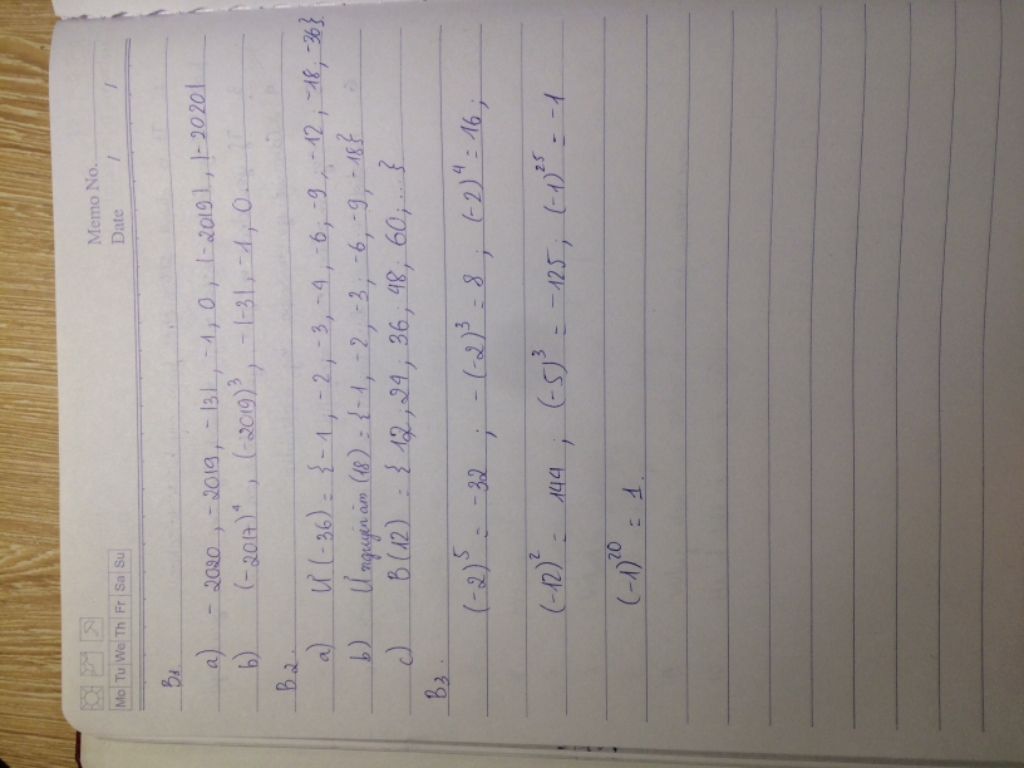 Memo No.
Mo Tu We Th Fr Sa Su Date / /
B1
a) - 2020, -2019, -|3|, -1, 0, |-2019|, |-2020|
b) (-2017)⁴, (-2019)³, -|-3|, -1, 0.
B2.
a) Ư(-36) = {-1, -2, -3, -4, -6, -9, -12, -18, -36}
b) Ư nguyên âm (18) = {-1, -2, -3, -6, -9, -18}
c) B(12) = {12, 24, 36, 48, 60, ...}
B3.
(-2)⁵ = -32 ; -(-2)³ = 8 ; (-2)⁴ = 16 ;
(-12)² = 144 ; (-5)³ = -125, (-1)²⁵ = -1
(-1)²⁰ = 1.